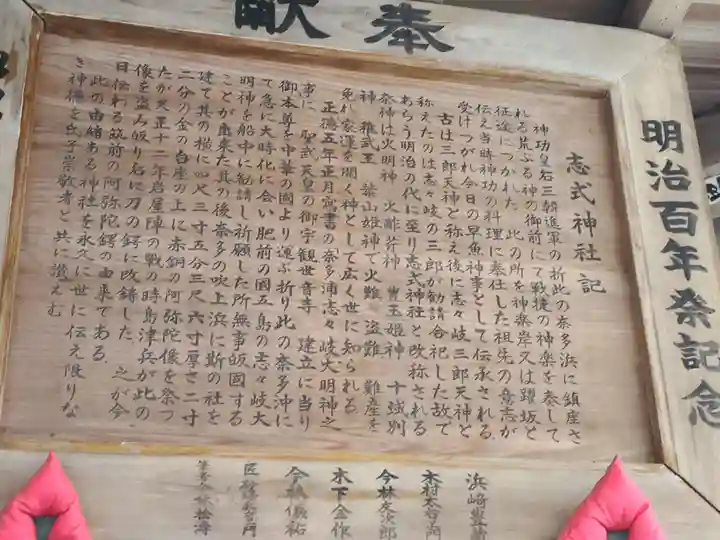 奉献
明治百年祭記念
志式神社記
神功皇后三朝進軍の折此の奈多浜に鎮座さ
れる荒ぶる神の御前にて戦捷の神楽を奏して
征途につかれた 此の所を神楽岸又は躍坂と
伝え当時神功の料理に奉仕した祖先の意志が
受けつがれ今日の早魚神事として伝承される
古は三郎天神と称え後に志々岐三郎天神と
称えたのは志々岐の三郎が勧請合祀した故で
あらう明治の代に至り志式神社と改称される
祭神は火明神 火酢芹神 豊玉姫神 十城別
神 稚武王 葉山姫神で火難 盗難 難産を
免れ家運を開く神として広く世に知られる
正徳五年正月寫書の「奈多浦志々岐大明神之
事」に 聖武天皇の御宇観世音寺 建立に当り
御本尊を中華の國より運ぶ折り此の奈多沖に
て急に大時化に会い肥前の國五島の志々岐大
明神を船中に勧請し祈願した所無事皈國する
ことが出来た其の後奈多の吹上浜に斯の社を
建て其の横に四尺三寸五分三尺六寸厚さ二寸
二分の金の台座の上に赤銅の阿弥陀像を祭っ
たが天正十二年岩屋陣の戦の時島津兵が此の
像を盗み皈り名に刀の鍔に改鋳した 之が今
日伝わる筑前の阿弥陀鍔の由来である
此の由緒ある神社を永久に世に伝え限りな
き神徳を氏子崇敬者と共に讃えむ
浜崎
木村
今林
木下金作
今林儀祐
匠